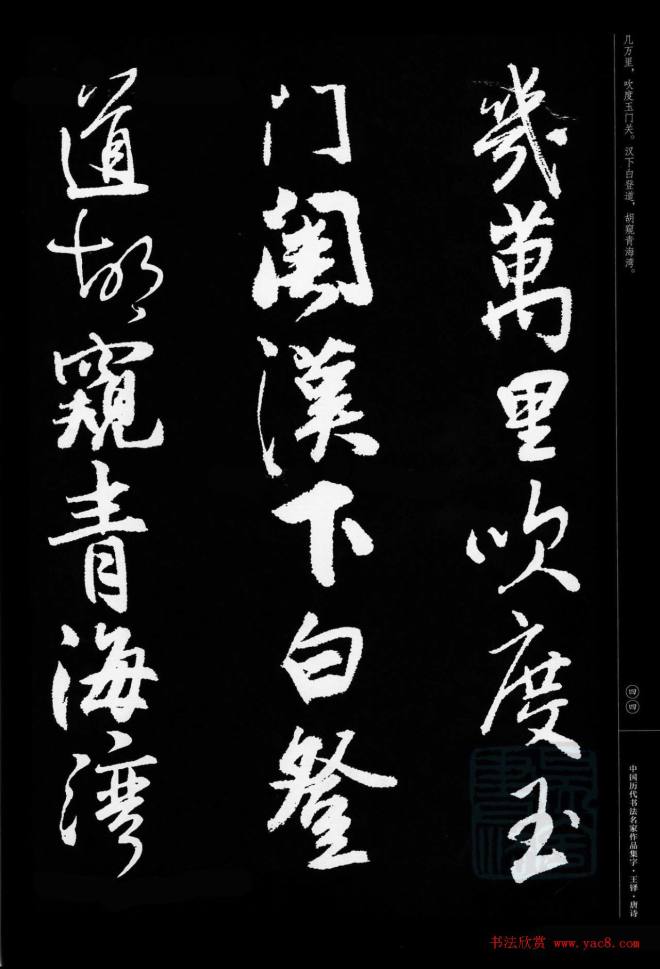 几万里，吹度玉门关。汉下白登道，胡窥青海湾。
幾萬里吹度玉
门關漢下白登
道胡窺青海湾
四四
中国历代书法名家作品集字·王铎·唐诗
书法欣赏 www.yac8.com